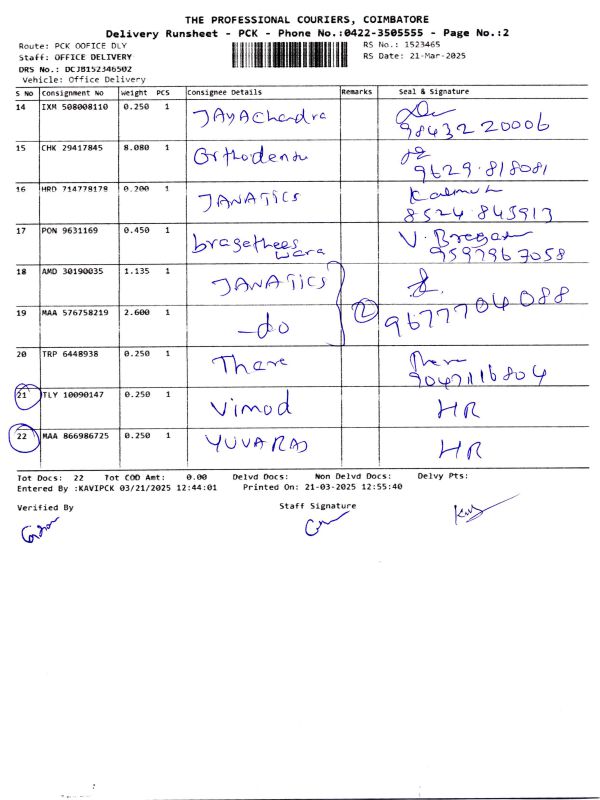 THE PROFESSIONAL COURIERS, COIMBATORE
Delivery Runsheet - PCK - Phone No.:0422-3505555 - Page No.:2
Route: PCK OOFICE DLY
RS No.: 1523465
Staff: OFFICE DELIVERY
RS Date: 21-Mar-2025
DRS No.: DCJB152346502
Vehicle: Office Delivery
S No Consignment No Weight PCS Consignee Details Remarks Seal & Signature
14 IXM 508008110 0.250 1 JAYAChandra
98432 20006
15 CHK 29417845 8.080 1 Orthodenu
9629.818081
16 HRD 714779179 0.200 1 JANATICS
8524.845913
17 PON 9631169 0.450 1
9597967058
18 AMD 30190035 1.135 1 JANATICS
19 MAA 576758219 2.600 1 -do 2 9677704088
20 TRP 6448938 0.250 1 Thare
21 TLY 10090147 0.250 1 Vimod HR
22 MAA 866986725 0.250 1 YUVARAJ HR
Tot Docs: 22 Tot COD Amt: 0.00 Delvd Docs: Non Delvd Docs: Delvy Pts:
Entered By :KAVIPCK 03/21/2025 12:44:01 Printed On: 21-03-2025 12:55:40
Verified By Staff Signature